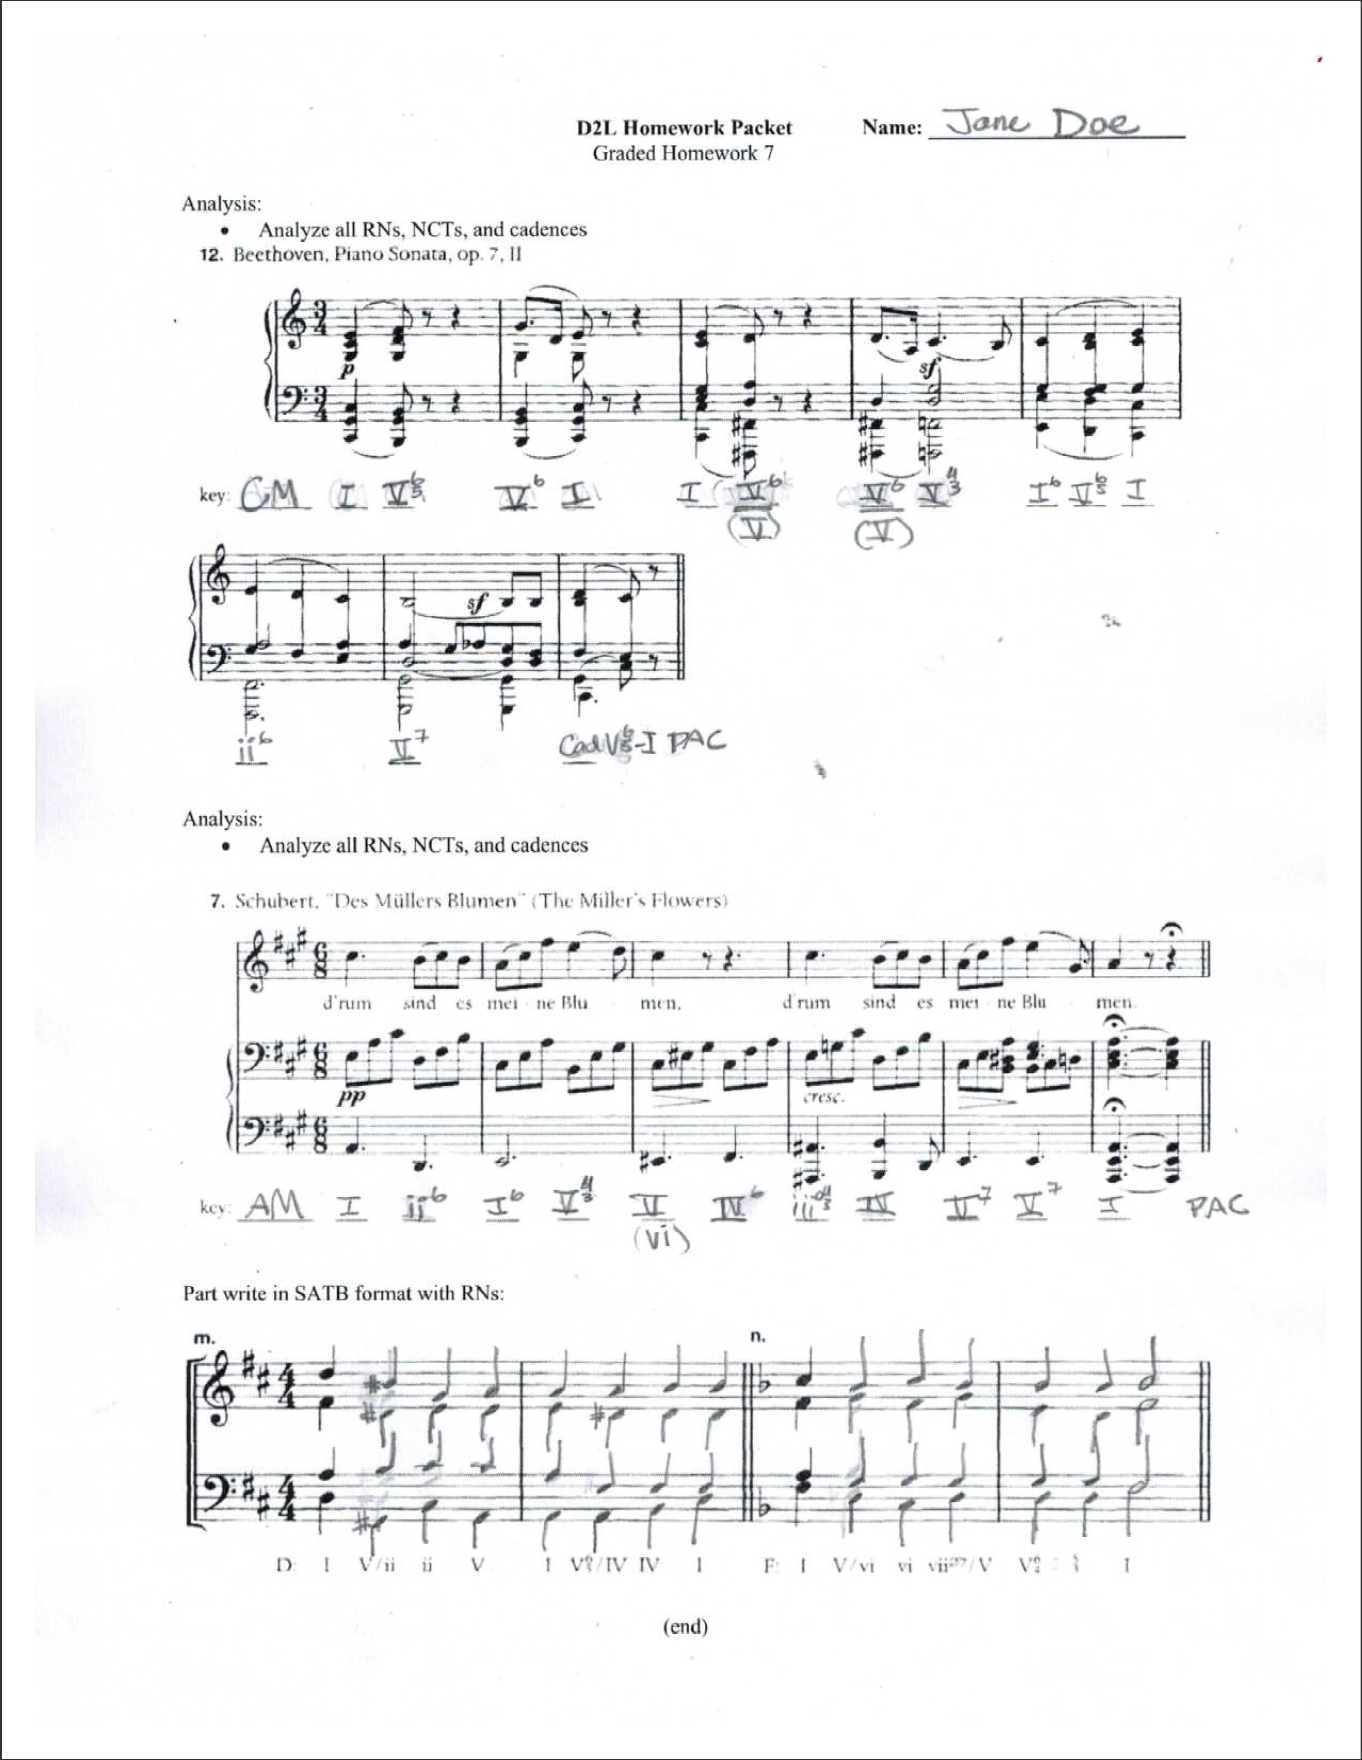 D2L Homework Packet Name: Jane Doe
Graded Homework 7
Analysis:
• Analyze all RNs, NCTs, and cadences
12. Beethoven, Piano Sonata, op. 7, II
p sf
key: CM I V6/5 V6 I I V6 V6 V4/3 I6 V6/5 I
(V) (V)
sf
ii6 V7 Cad V6/5-I PAC
Analysis:
• Analyze all RNs, NCTs, and cadences
7. Schubert, "Des Müllers Blumen" (The Miller's Flowers)
d'rum sind es mei - ne Blu - men, d'rum sind es mei - ne Blu - men.
pp cresc.
key: AM I ii6 I6 V4/3 V IV6 iii°4/3 IV V7 V7 I PAC
(vi)
Part write in SATB format with RNs:
m. n.
D: I V/ii ii V I /IV IV I F: I V/vi vi vii°7/V I
(end)